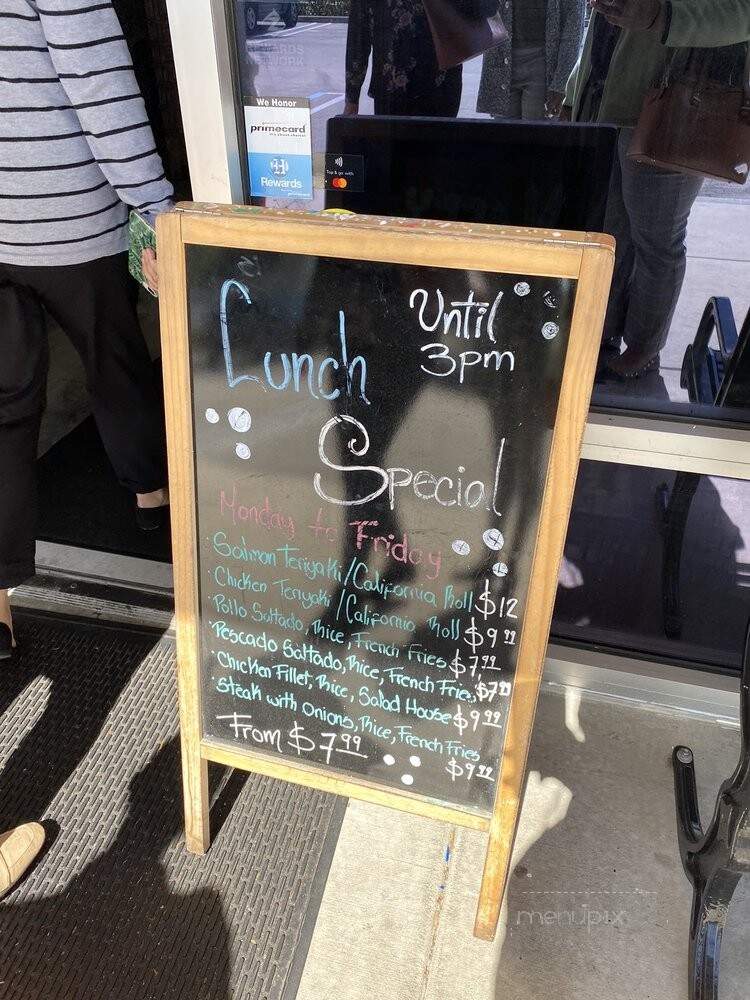 REWARDS
NETWORK
We Honor
primecard
Rewards
Tap & go with
Lunch
Until
3pm
Special
Monday to Friday
· Salmon Teriyaki/California Roll $12
· Chicken Teriyaki/California Roll $9.99
· Pollo Saltado, Rice, French Fries $7.99
· Pescado Saltado, Rice, French Fries, $7.99
· Chicken Fillet, Rice, Salad House $9.99
· Steak with onions, Rice, French Fries $9.99
From $7.99
menupix